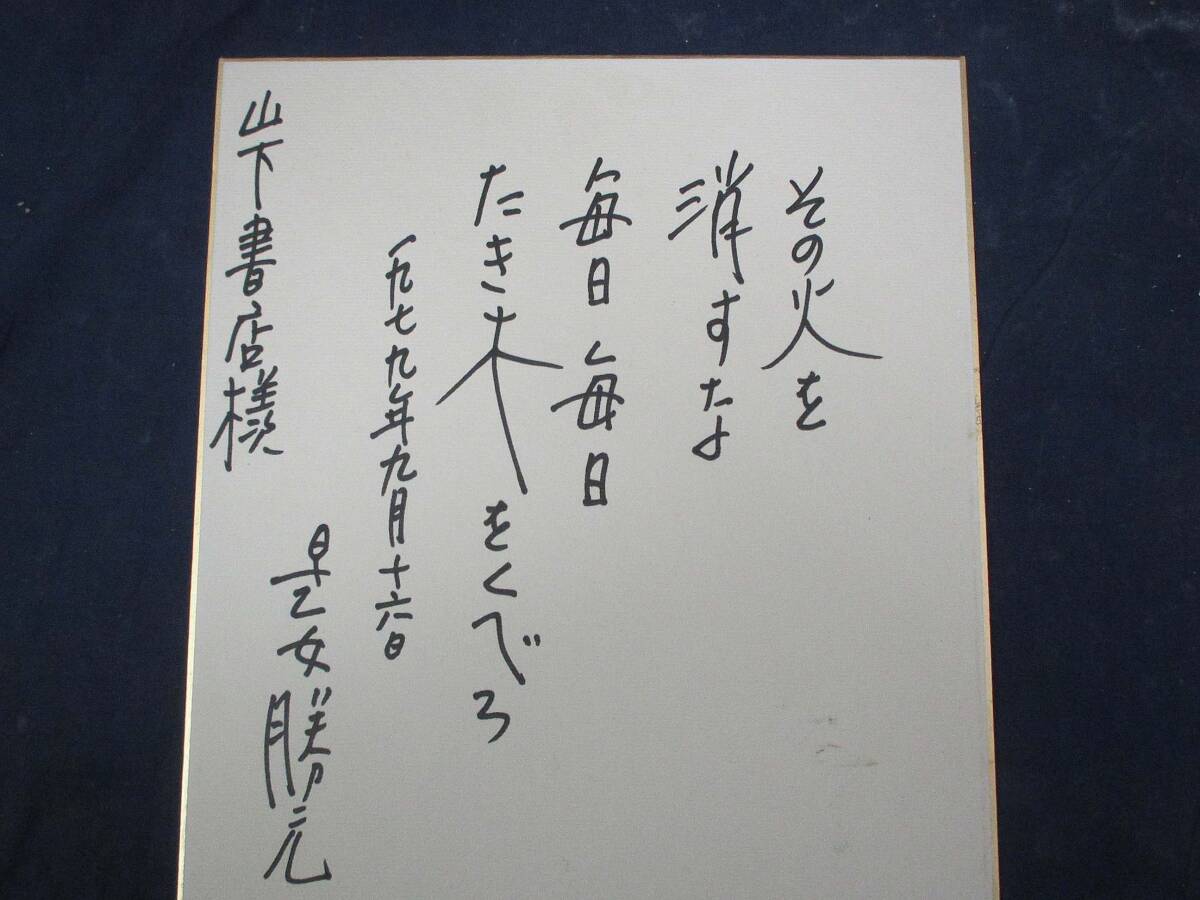 その火を
消すなよ
毎日毎日
たき木をくべろ
一九七九年九月十六日
早乙女勝元
山下書店様